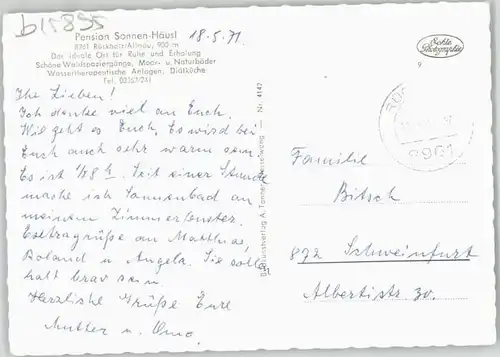 b15895
Pension Sonnen-Häusl
8961 Rückholz/Allgäu, 900 m
Der ideale Ort für Ruhe und Erholung
Schöne Waldspaziergänge, Moor- u. Naturbäder
Wassertherapeutische Anlagen, Diätküche
Tel.
18.5.71.
Ihr Lieben!
Ich denke viel an Euch.
Wie geht es Euch. Es wird bei
Euch auch sehr warm sein.
Es ist 1/48 h. Seit einer Stunde
mache ich Sonnenbad an
meinem Zimmerfenster.
Extragrüße an Matthias,
Roland u. Angela. Sie sollen
halt brav sein.
Herzliche Grüße Eure
Mutter u. Oma.
A. Tanner, Nesselwang — Nr. 4147
Echte
Photographie
9
Familie
Bitsch
872 Schweinfurt
Albertistr. 30.